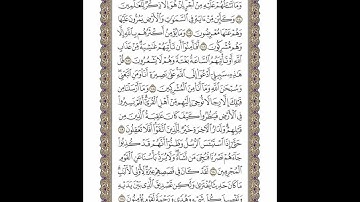 وَمَا تَسْـَٔلُهُمْ عَلَيْهِ مِنْ أَجْرٍ إِنْ هُوَ إِلَّا ذِكْرٌ لِّلْعَٰلَمِينَ
۝ وَكَأَيِّن مِّنْ ءَايَةٍ فِى ٱلسَّمَٰوَٰتِ وَٱلْأَرْضِ يَمُرُّونَ عَلَيْهَا
وَهُمْ عَنْهَا مُعْرِضُونَ ۝ وَمَا يُؤْمِنُ أَكْثَرُهُم بِٱللَّهِ إِلَّا
وَهُم مُّشْرِكُونَ ۝ أَفَأَمِنُوٓا۟ أَن تَأْتِيَهُمْ غَٰشِيَةٌ مِّنْ عَذَابِ
ٱللَّهِ أَوْ تَأْتِيَهُمُ ٱلسَّاعَةُ بَغْتَةً وَهُمْ لَا يَشْعُرُونَ ۝ قُلْ
هَٰذِهِۦ سَبِيلِىٓ أَدْعُوٓا۟ إِلَى ٱللَّهِ عَلَىٰ بَصِيرَةٍ أَنَا۠ وَمَنِ ٱتَّبَعَنِى
وَسُبْحَٰنَ ٱللَّهِ وَمَآ أَنَا۠ مِنَ ٱلْمُشْرِكِينَ ۝ وَمَآ أَرْسَلْنَا مِن
قَبْلِكَ إِلَّا رِجَالًا نُّوحِىٓ إِلَيْهِم مِّنْ أَهْلِ ٱلْقُرَىٰٓ أَفَلَمْ يَسِيرُوا۟
فِى ٱلْأَرْضِ فَيَنظُرُوا۟ كَيْفَ كَانَ عَٰقِبَةُ ٱلَّذِينَ مِن
قَبْلِهِمْ وَلَدَارُ ٱلْءَاخِرَةِ خَيْرٌ لِّلَّذِينَ ٱتَّقَوْا۟ أَفَلَا تَعْقِلُونَ ۝
حَتَّىٰٓ إِذَا ٱسْتَيْـَٔسَ ٱلرُّسُلُ وَظَنُّوٓا۟ أَنَّهُمْ قَدْ كُذِبُوا۟
جَآءَهُمْ نَصْرُنَا فَنُجِّىَ مَن نَّشَآءُ وَلَا يُرَدُّ بَأْسُنَا عَنِ ٱلْقَوْمِ
ٱلْمُجْرِمِينَ ۝ لَقَدْ كَانَ فِى قَصَصِهِمْ عِبْرَةٌ لِّأُو۟لِى ٱلْأَلْبَٰبِ
مَا كَانَ حَدِيثًا يُفْتَرَىٰ وَلَٰكِن تَصْدِيقَ ٱلَّذِى بَيْنَ يَدَيْهِ
وَتَفْصِيلَ كُلِّ شَىْءٍ وَهُدًى وَرَحْمَةً لِّقَوْمٍ يُؤْمِنُونَ ۝